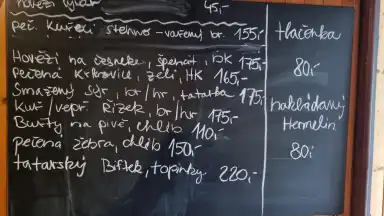 hovězí vývar 45,-
peč. Kuřecí stehno - vařený br. 155,-
Hovězí na česneku, špenát, bK 175,-
Pečená Krkovice, zelí, HK 165,-
Smažený sýr, br/hr, tatarka 175,-
Kuř/vepř. Řízek, br/hr 175,-
Buřty na pivě, chlib 110,-
pečená žebra, chlib 150,-
tatarský Biftek, topinky 220,-
tlačenka
80,-
nakládaný
Hermelín
80,-